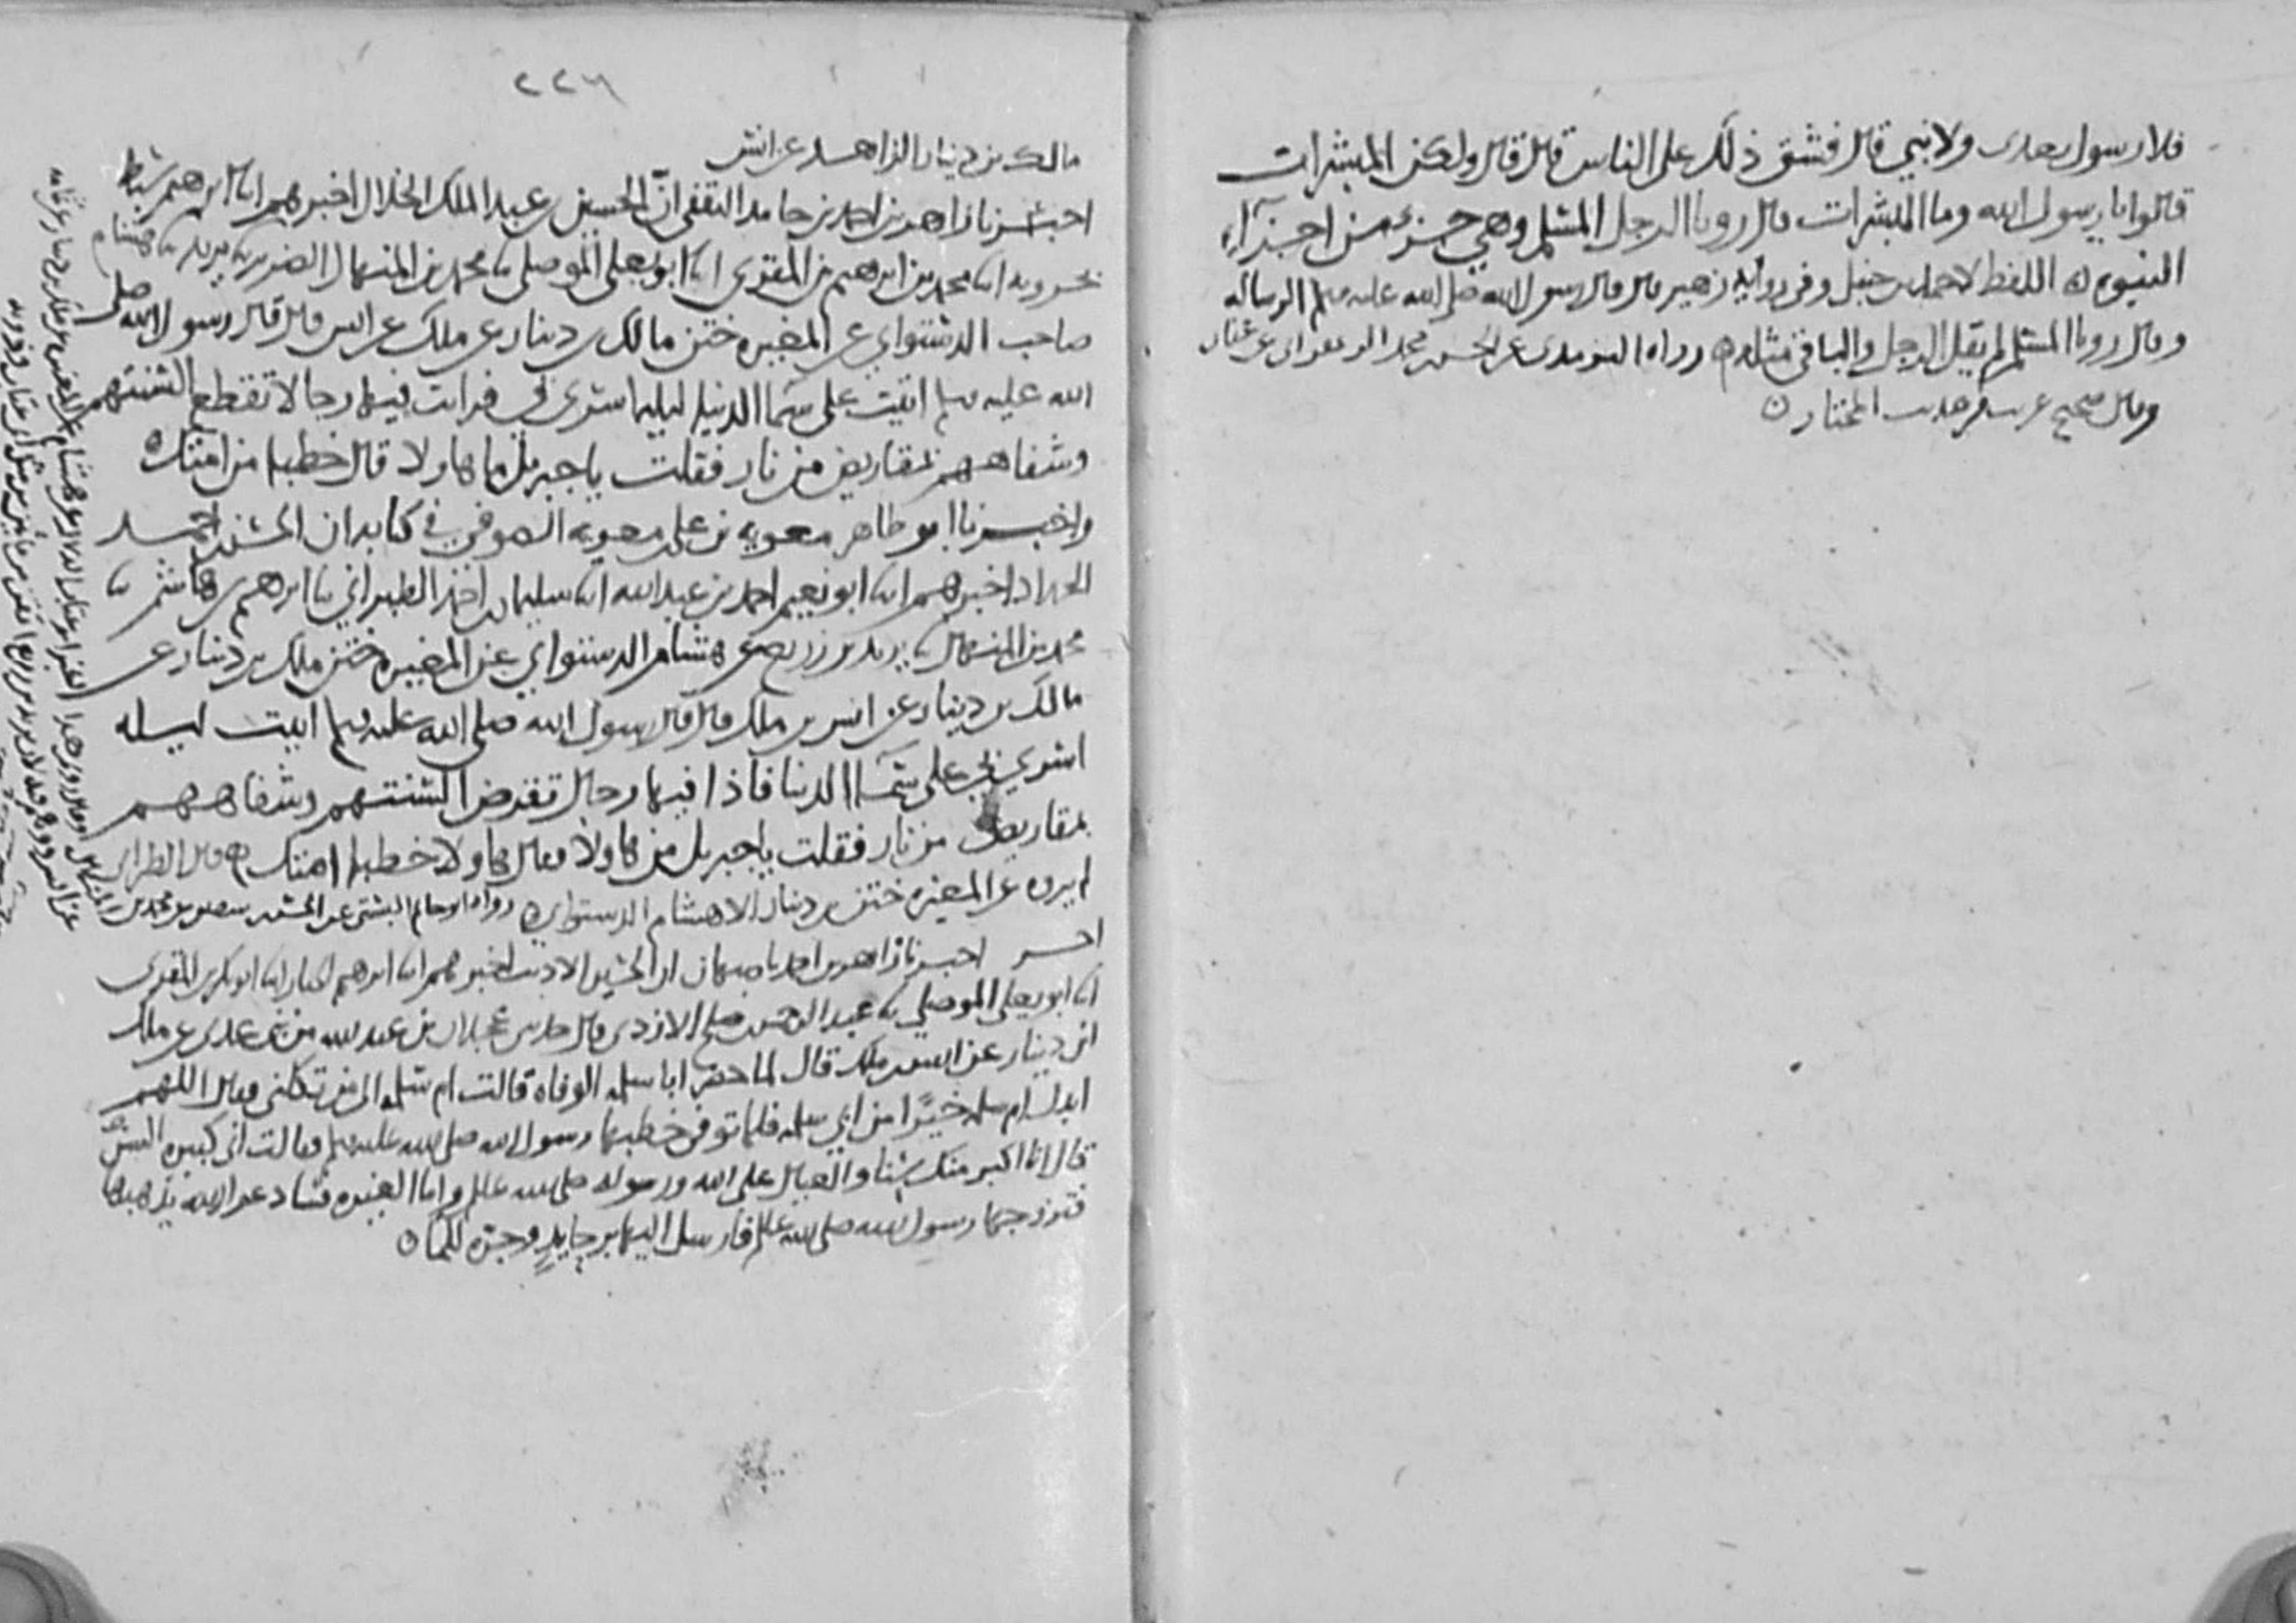 فلا رسول بعدي ولا نبي قال فشق ذلك على الناس قال قال ولكن المبشرات
قالوا يا رسول الله وما المبشرات قال رويا الرجل المسلم وهي جزء من اجزاء
النبوه اللفظ لاحمد بن حنبل وفي رواية زهير قال قال رسول الله صلى الله عليه وسلم الرساله
وقال رويا المسلم لم يقل الرجل والباقي مثله رواه الترمذي عن الحسن بن محمد الزعفراني عن عفان
وقال صحيح غريب من حديث المختار
٢٢٦
مالك بن دينار الزاهد عن انس
اخبرنا زاهر بن احمد بن حامد الثقفي ان الحسين بن عبد الملك الخلال اخبرهم ابنا ابرهيم سبط
بحرويه ابنا محمد بن ابرهيم بن المقري ابنا ابو يعلى الموصلي ثنا محمد بن المنهال الضرير ثنا يزيد ثنا هشام
صاحب الدستواي عن المغيره ختن مالك بن دينار عن ملك عن انس قال قال رسول الله صلى
الله عليه وسلم اتيت على سما الدنيا ليله اسري بي فرايت فيها رجالا تقطع السنتهم
وشفاههم بمقاريض من نار فقلت يا جبريل ما هاولا قال خطبا من امتك
واخبرنا ابو طاهر معويه بن علي بن معويه الصوفي في كتابه ان الحسن بن احمد
الحداد اخبرهم ابنا ابو نعيم احمد بن عبد الله ابنا سليمان بن احمد الطبراني ثنا ابرهيم بن هاشم ثنا
محمد بن المنهال ثنا يزيد بن زريع عن هشام الدستواي عن المغيره ختن ملك بن دينار عن
مالك بن دينار عن انس بن ملك قال قال رسول الله صلى الله عليه وسلم اتيت ليله
اسري بي على سما الدنيا فاذا فيها رجال تقرض السنتهم وشفاههم
بمقاريض من نار فقلت يا جبريل من هاولا فقال هاولا خطبا امتك قال الطبراني
لم يروه عن المغيره ختن بن دينار الا هشام الدستواي رواه ابو حاتم البستي عن الحسن بن سفين عن محمد بن المنهال
اخر اخبرنا زاهر بن احمد باصبهان ان الحسين الاديب اخبرهم ابنا ابرهيم ابنا ابو بكر بن المقري
ابنا ابو يعلى الموصلي ثنا عبد الرحمن بن صلح الازدي قال حدثني عجلان بن عبد الله من بني عدي عن ملك
ابن دينار عن انس بن ملك قال لما حضر ابا سلمه الوفاه قالت ام سلمه الى من تكلني فقال اللهم
ابدل ام سلمه خيرا من ابي سلمه فلما توفي خطبها رسول الله صلى الله عليه وسلم فقالت اني كبيره السن
قال انا اكبر منك سنا والعيال على الله ورسوله صلى الله عليه وسلم واما الغيره فسادعو الله يذهبها
فتزوجها رسول الله صلى الله عليه وسلم فارسل اليها برحايين وجره للما